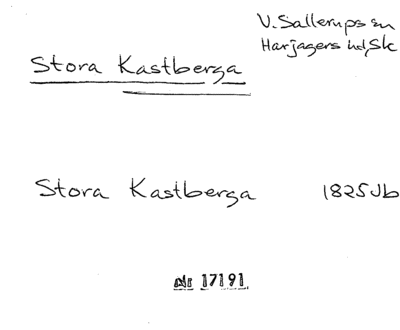 V. Sallerups sn
Harjagers hd, Sk
Stora Kastberga
Stora Kastberga 1825 Jb
Nr 17191